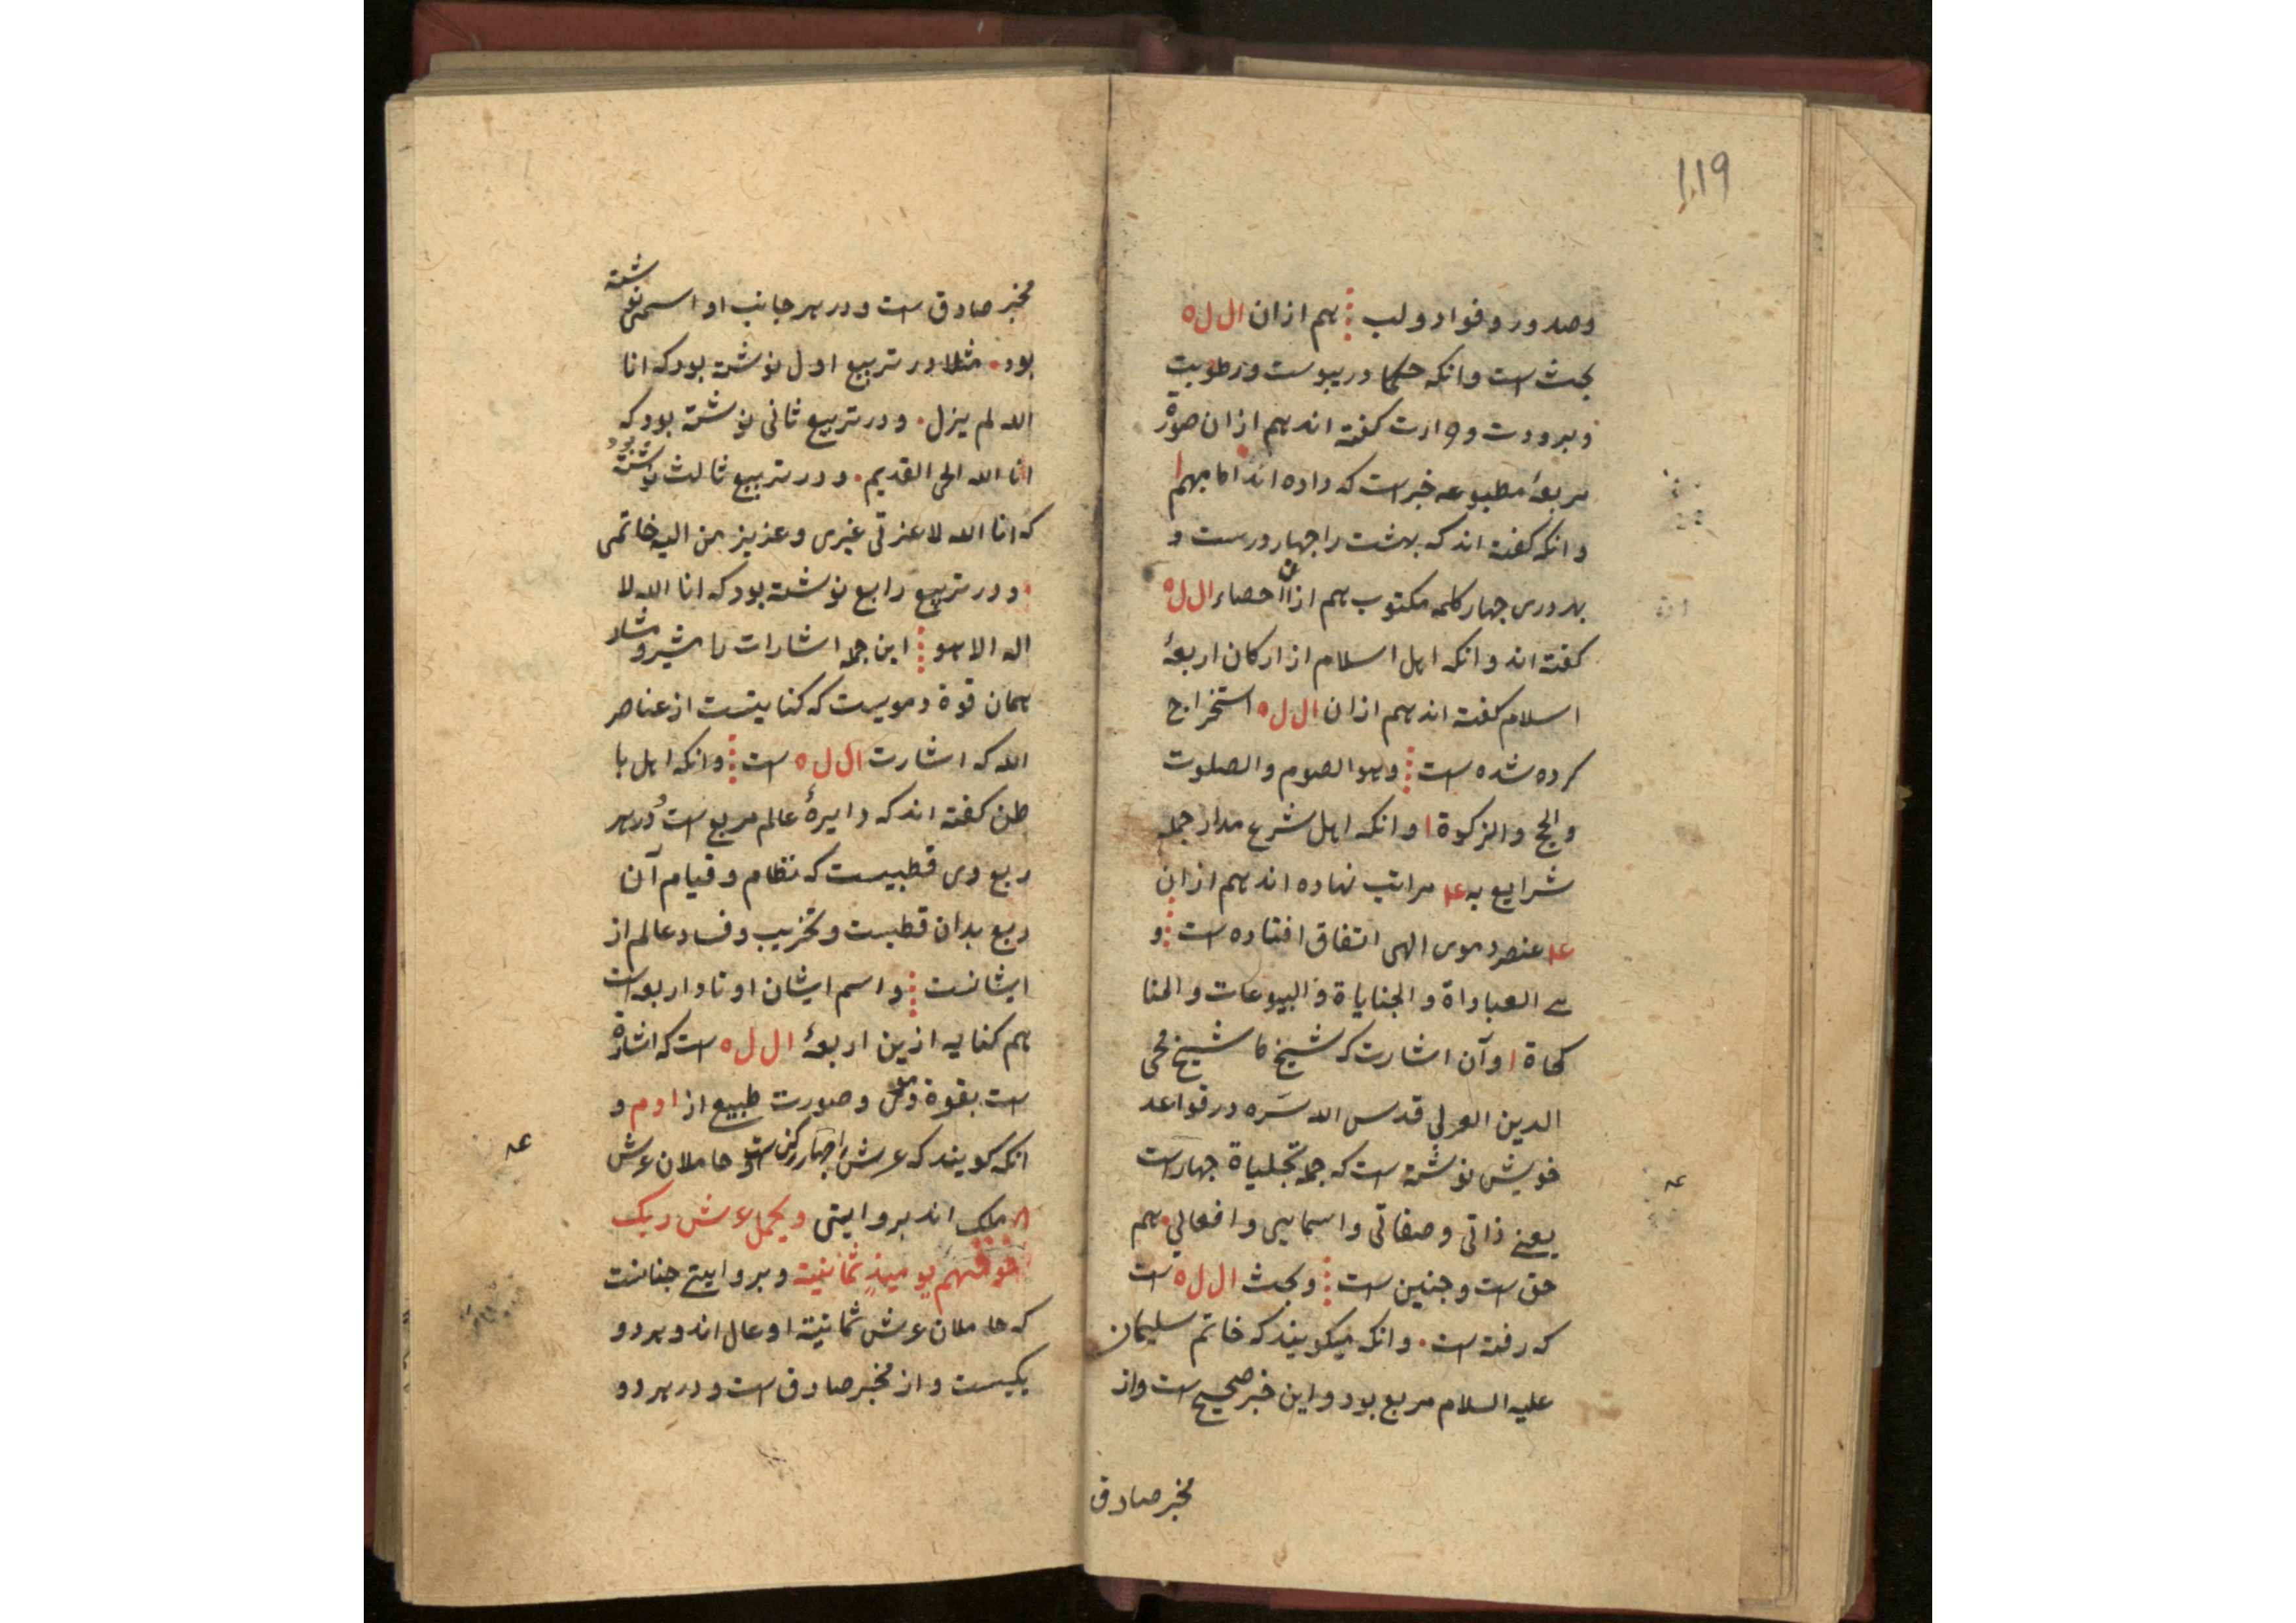 119
وصدور و فواد و لب هم ازان ال ل ه
بحث است وانکه حکما در یبوست و رطوبت
و برودت و حرارت کفته اند هم ازان صورة
مربعهٔ مطبوعه خبرست که داده اند اما مبهم ا
وانکه کفته اند که بهشت را جهار درست و
بهر دری جهار کلمه مکتوب هم ازان احصاء ال ل ه
کفته اند وانکه اهل اسلام از ارکان اربعهٔ
اسلام کفته اند هم ازان ال ل ه استخراج
کرده شده است وهو الصوم والصلوت
والحج والزکوة ا وانکه اهل شرع مدار جمله
شرایع به ۴ مراتب نهاده اند هم ازان
۴ عنصر دموی الهی اتفاق افتاده است و
هی العباداة والجنایاة والبیوعات والمنا
کحاة ا وآن اشارت که شیخ ما شیخ محی
الدین العربی قدس الله سره در قواعد
خویش نوشته است که جمله تجلیاة جهارست
یعنی ذاتی و صفاتی و اسمایی و افعالی هم
حق است و جنین است و بحث ال ل ه است
که رفته است وانکه میکویند که خاتم سلیمان
علیه السلام مربع بود و این خبر صحیح است و از
مخبر صادق
مخبر صادق است و در هر جانب او اسمی نوشته
بود مثلا در تربیع اول نوشته بود که انا
الله لم یزل و در تربیع ثانی نوشته بود که
انا الله الحی القدیم و در تربیع ثالث نوشته بود
که انا الله لا عزتی غیری و عزیز من الیه خاتمی
و در تربیع رابع نوشته بود که انا الله لا
اله الا هو این جمله اشارات ما مشیر و مشار
همان قوة دمویست که کنایتست از عناصر
الله که اشارت ال ل ه است وانکه اهل با
طن کفته اند که دایرهٔ عالم مربع است و در هر
ربع وی قطبیست که نظام و قیام آن
ربع بدان قطبست و تخریب و فساد عالم از
ایشانست و اسم ایشان اوتاد اربعه است
هم کنایه ازین اربعهٔ ال ل ه است که اشارة
است بقوة دموی و صورت طبیع از ا د م و
انکه کویند که عرش را جهار رکن است و حاملان عرش
۸ ملک اند بروایتی ویحمل عرش ربک
فوقهم یومیذ ثمانیة و بروایتی جنانست
که حاملان عرش ثمانیة اوعال اند و هر دو
یکیست و از مخبر صادق است و در هر دو